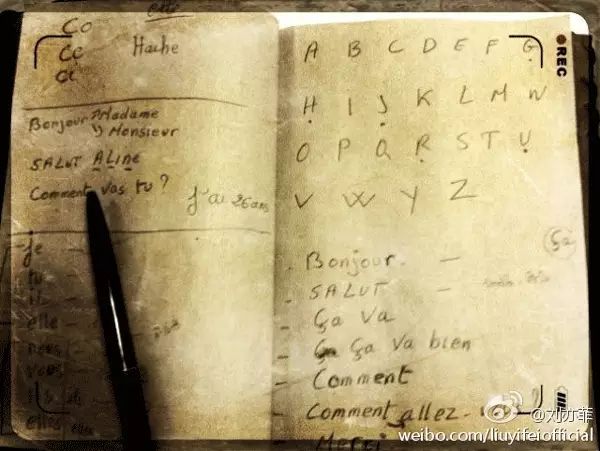 Co
ce
ci
Hache
Bonjour Madame
Monsieur
SALUT ALine
Comment vas tu ?
J'ai 26 ans
Je
tu
elle
nous
vous
elles
A B C D E F G
H I J K L M N
O P Q R S T U
V W Y Z
Ça
- Bonjour. -
- SALUT -
- Ça Va
- Ça Va bien
- Comment
- Comment allez-
- Merci
REC
@刘亦菲
weibo.com/liuyifeiofficial